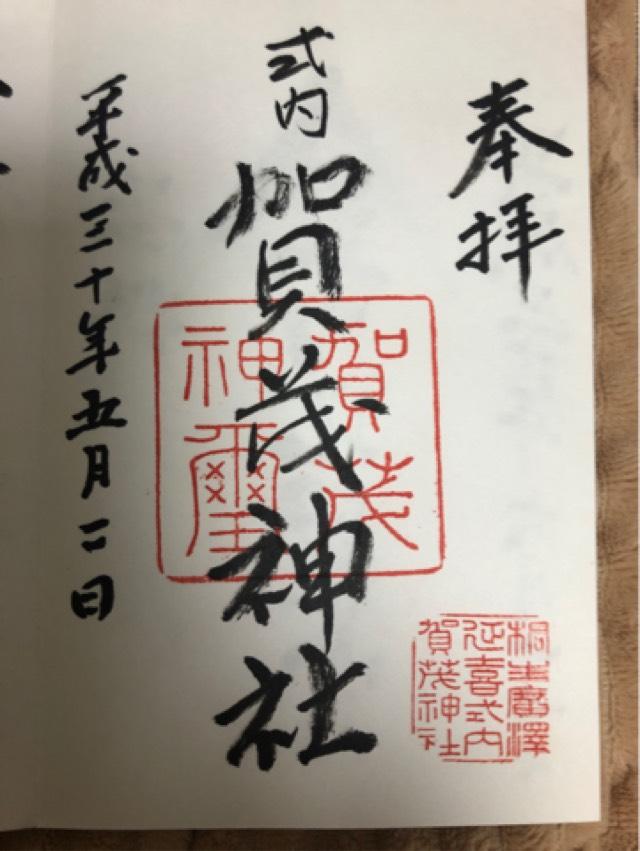 奉拝
式内
賀茂神社
平成三十年五月二日
賀茂
神璽
桐生廣澤
延喜式内
賀茂神社